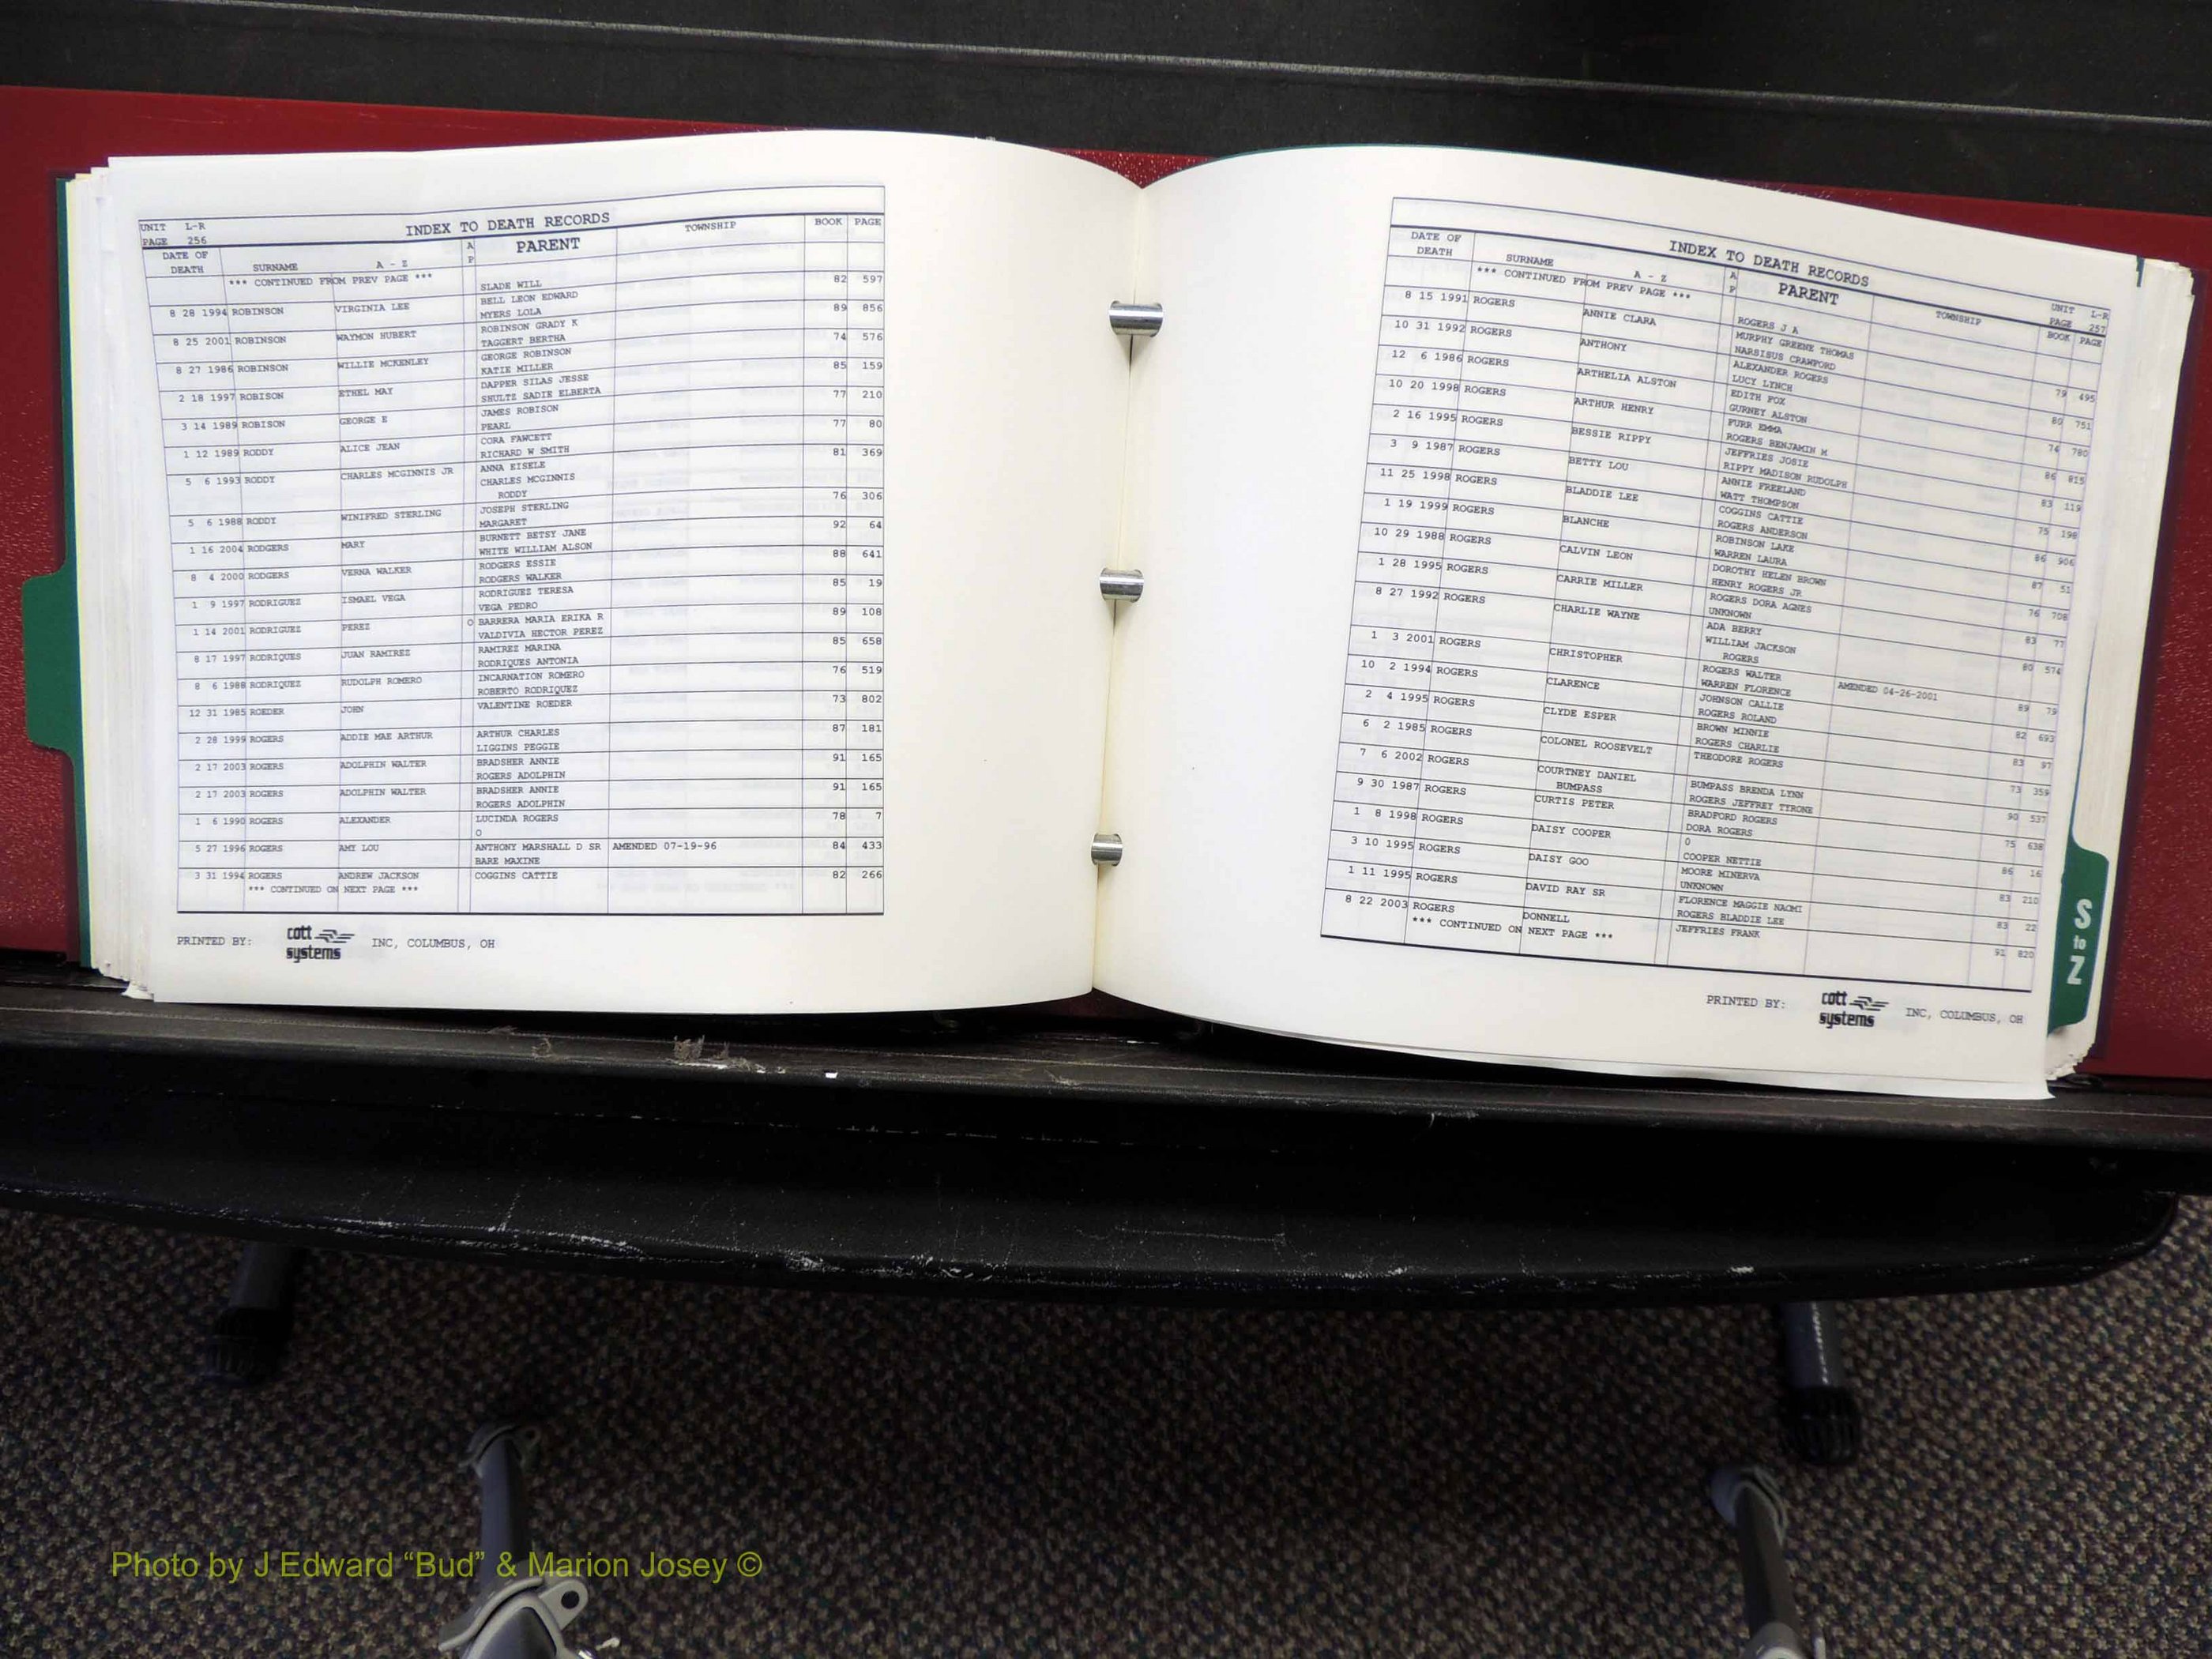 UNIT L-R
PAGE 256
INDEX TO DEATH RECORDS
DATE OF DEATH SURNAME A - Z A P PARENT TOWNSHIP BOOK PAGE
*** CONTINUED FROM PREV PAGE *** SLADE WILL 82 597
8 28 1994 ROBINSON VIRGINIA LEE BELL LEON EDWARD 89 856
MYERS LOLA
8 25 2001 ROBINSON WAYMON HUBERT ROBINSON GRADY K 74 576
TAGGERT BERTHA
8 27 1986 ROBINSON WILLIE MCKENLEY GEORGE ROBINSON 85 159
KATIE MILLER
2 18 1997 ROBISON ETHEL MAY DAPPER SILAS JESSE 77 210
SHULTZ SADIE ELBERTA
3 14 1989 ROBISON GEORGE E JAMES ROBISON 77 80
PEARL
1 12 1989 RODDY ALICE JEAN CORA FAWCETT 81 369
RICHARD W SMITH
5 6 1993 RODDY CHARLES MCGINNIS JR ANNA EISELE
CHARLES MCGINNIS
RODDY 76 306
5 6 1988 RODDY WINIFRED STERLING JOSEPH STERLING 92 64
MARGARET
1 16 2004 RODGERS MARY BURNETT BETSY JANE 88 641
WHITE WILLIAM ALSON
8 4 2000 RODGERS VERNA WALKER RODGERS ESSIE 85 19
RODGERS WALKER
1 9 1997 RODRIGUEZ ISMAEL VEGA RODRIGUEZ TERESA 89 108
VEGA PEDRO
1 14 2001 RODRIGUEZ PEREZ O BARRERA MARIA ERIKA R 85 658
VALDIVIA HECTOR PEREZ
8 17 1997 RODRIQUES JUAN RAMIREZ RAMIREZ MARINA 76 519
RODRIQUES ANTONIA
8 6 1988 RODRIQUEZ RUDOLPH ROMERO INCARNATION ROMERO 73 802
ROBERTO RODRIQUEZ
12 31 1985 ROEDER JOHN VALENTINE ROEDER
2 28 1999 ROGERS ADDIE MAE ARTHUR ARTHUR CHARLES 87 181
LIGGINS PEGGIE
2 17 2003 ROGERS ADOLPHIN WALTER BRADSHER ANNIE 91 165
ROGERS ADOLPHIN
2 17 2003 ROGERS ADOLPHIN WALTER BRADSHER ANNIE 91 165
ROGERS ADOLPHIN
1 6 1990 ROGERS ALEXANDER LUCINDA ROGERS 78 7
O
5 27 1996 ROGERS AMY LOU ANTHONY MARSHALL D SR AMENDED 07-19-96 84 433
BARE MAXINE
3 31 1994 ROGERS ANDREW JACKSON COGGINS CATTIE 82 266
*** CONTINUED ON NEXT PAGE ***
PRINTED BY: cott systems INC, COLUMBUS, OH
INDEX TO DEATH RECORDS
UNIT L-R
PAGE 257
DATE OF DEATH SURNAME A - Z A P PARENT TOWNSHIP BOOK PAGE
*** CONTINUED FROM PREV PAGE *** ROGERS J A
8 15 1991 ROGERS ANNIE CLARA MURPHY GREENE THOMAS 79 495
NARSISUS CRAWFORD
10 31 1992 ROGERS ANTHONY ALEXANDER ROGERS 80 751
LUCY LYNCH
12 6 1986 ROGERS ARTHELIA ALSTON EDITH FOX 74 780
GURNEY ALSTON
10 20 1998 ROGERS ARTHUR HENRY FURR EMMA 86 815
ROGERS BENJAMIN M
2 16 1995 ROGERS BESSIE RIPPY JEFFRIES JOSIE 83 119
RIPPY MADISON RUDOLPH
3 9 1987 ROGERS BETTY LOU ANNIE FREELAND 75 198
WATT THOMPSON
11 25 1998 ROGERS BLADDIE LEE COGGINS CATTIE 86 906
ROGERS ANDERSON
1 19 1999 ROGERS BLANCHE ROBINSON LAKE 87 51
WARREN LAURA
10 29 1988 ROGERS CALVIN LEON DOROTHY HELEN BROWN 76 708
HENRY ROGERS JR
1 28 1995 ROGERS CARRIE MILLER ROGERS DORA AGNES 83 77
UNKNOWN
8 27 1992 ROGERS CHARLIE WAYNE ADA BERRY 80 574
WILLIAM JACKSON
ROGERS
1 3 2001 ROGERS CHRISTOPHER ROGERS WALTER AMENDED 04-26-2001 89 79
WARREN FLORENCE
10 2 1994 ROGERS CLARENCE JOHNSON CALLIE 82 693
ROGERS ROLAND
2 4 1995 ROGERS CLYDE ESPER BROWN MINNIE 83 97
ROGERS CHARLIE
6 2 1985 ROGERS COLONEL ROOSEVELT THEODORE ROGERS 73 359
7 6 2002 ROGERS COURTNEY DANIEL BUMPASS BUMPASS BRENDA LYNN 90 537
ROGERS JEFFREY TYRONE
9 30 1987 ROGERS CURTIS PETER BRADFORD ROGERS 75 638
DORA ROGERS
1 8 1998 ROGERS DAISY COOPER O 86 16
COOPER NETTIE
3 10 1995 ROGERS DAISY GOO MOORE MINERVA 83 210
UNKNOWN
1 11 1995 ROGERS DAVID RAY SR FLORENCE MAGGIE NAOMI 83 22
ROGERS BLADDIE LEE
8 22 2003 ROGERS DONNELL JEFFRIES FRANK 91 820
*** CONTINUED ON NEXT PAGE ***
PRINTED BY: cott systems INC, COLUMBUS, OH
S to Z
Photo by J Edward “Bud” & Marion Josey ©